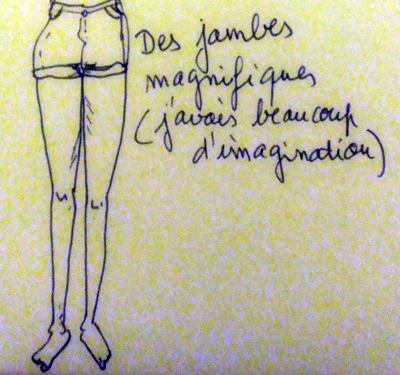 Des jambes
magnifiques
(j'avais beaucoup
d'imagination)